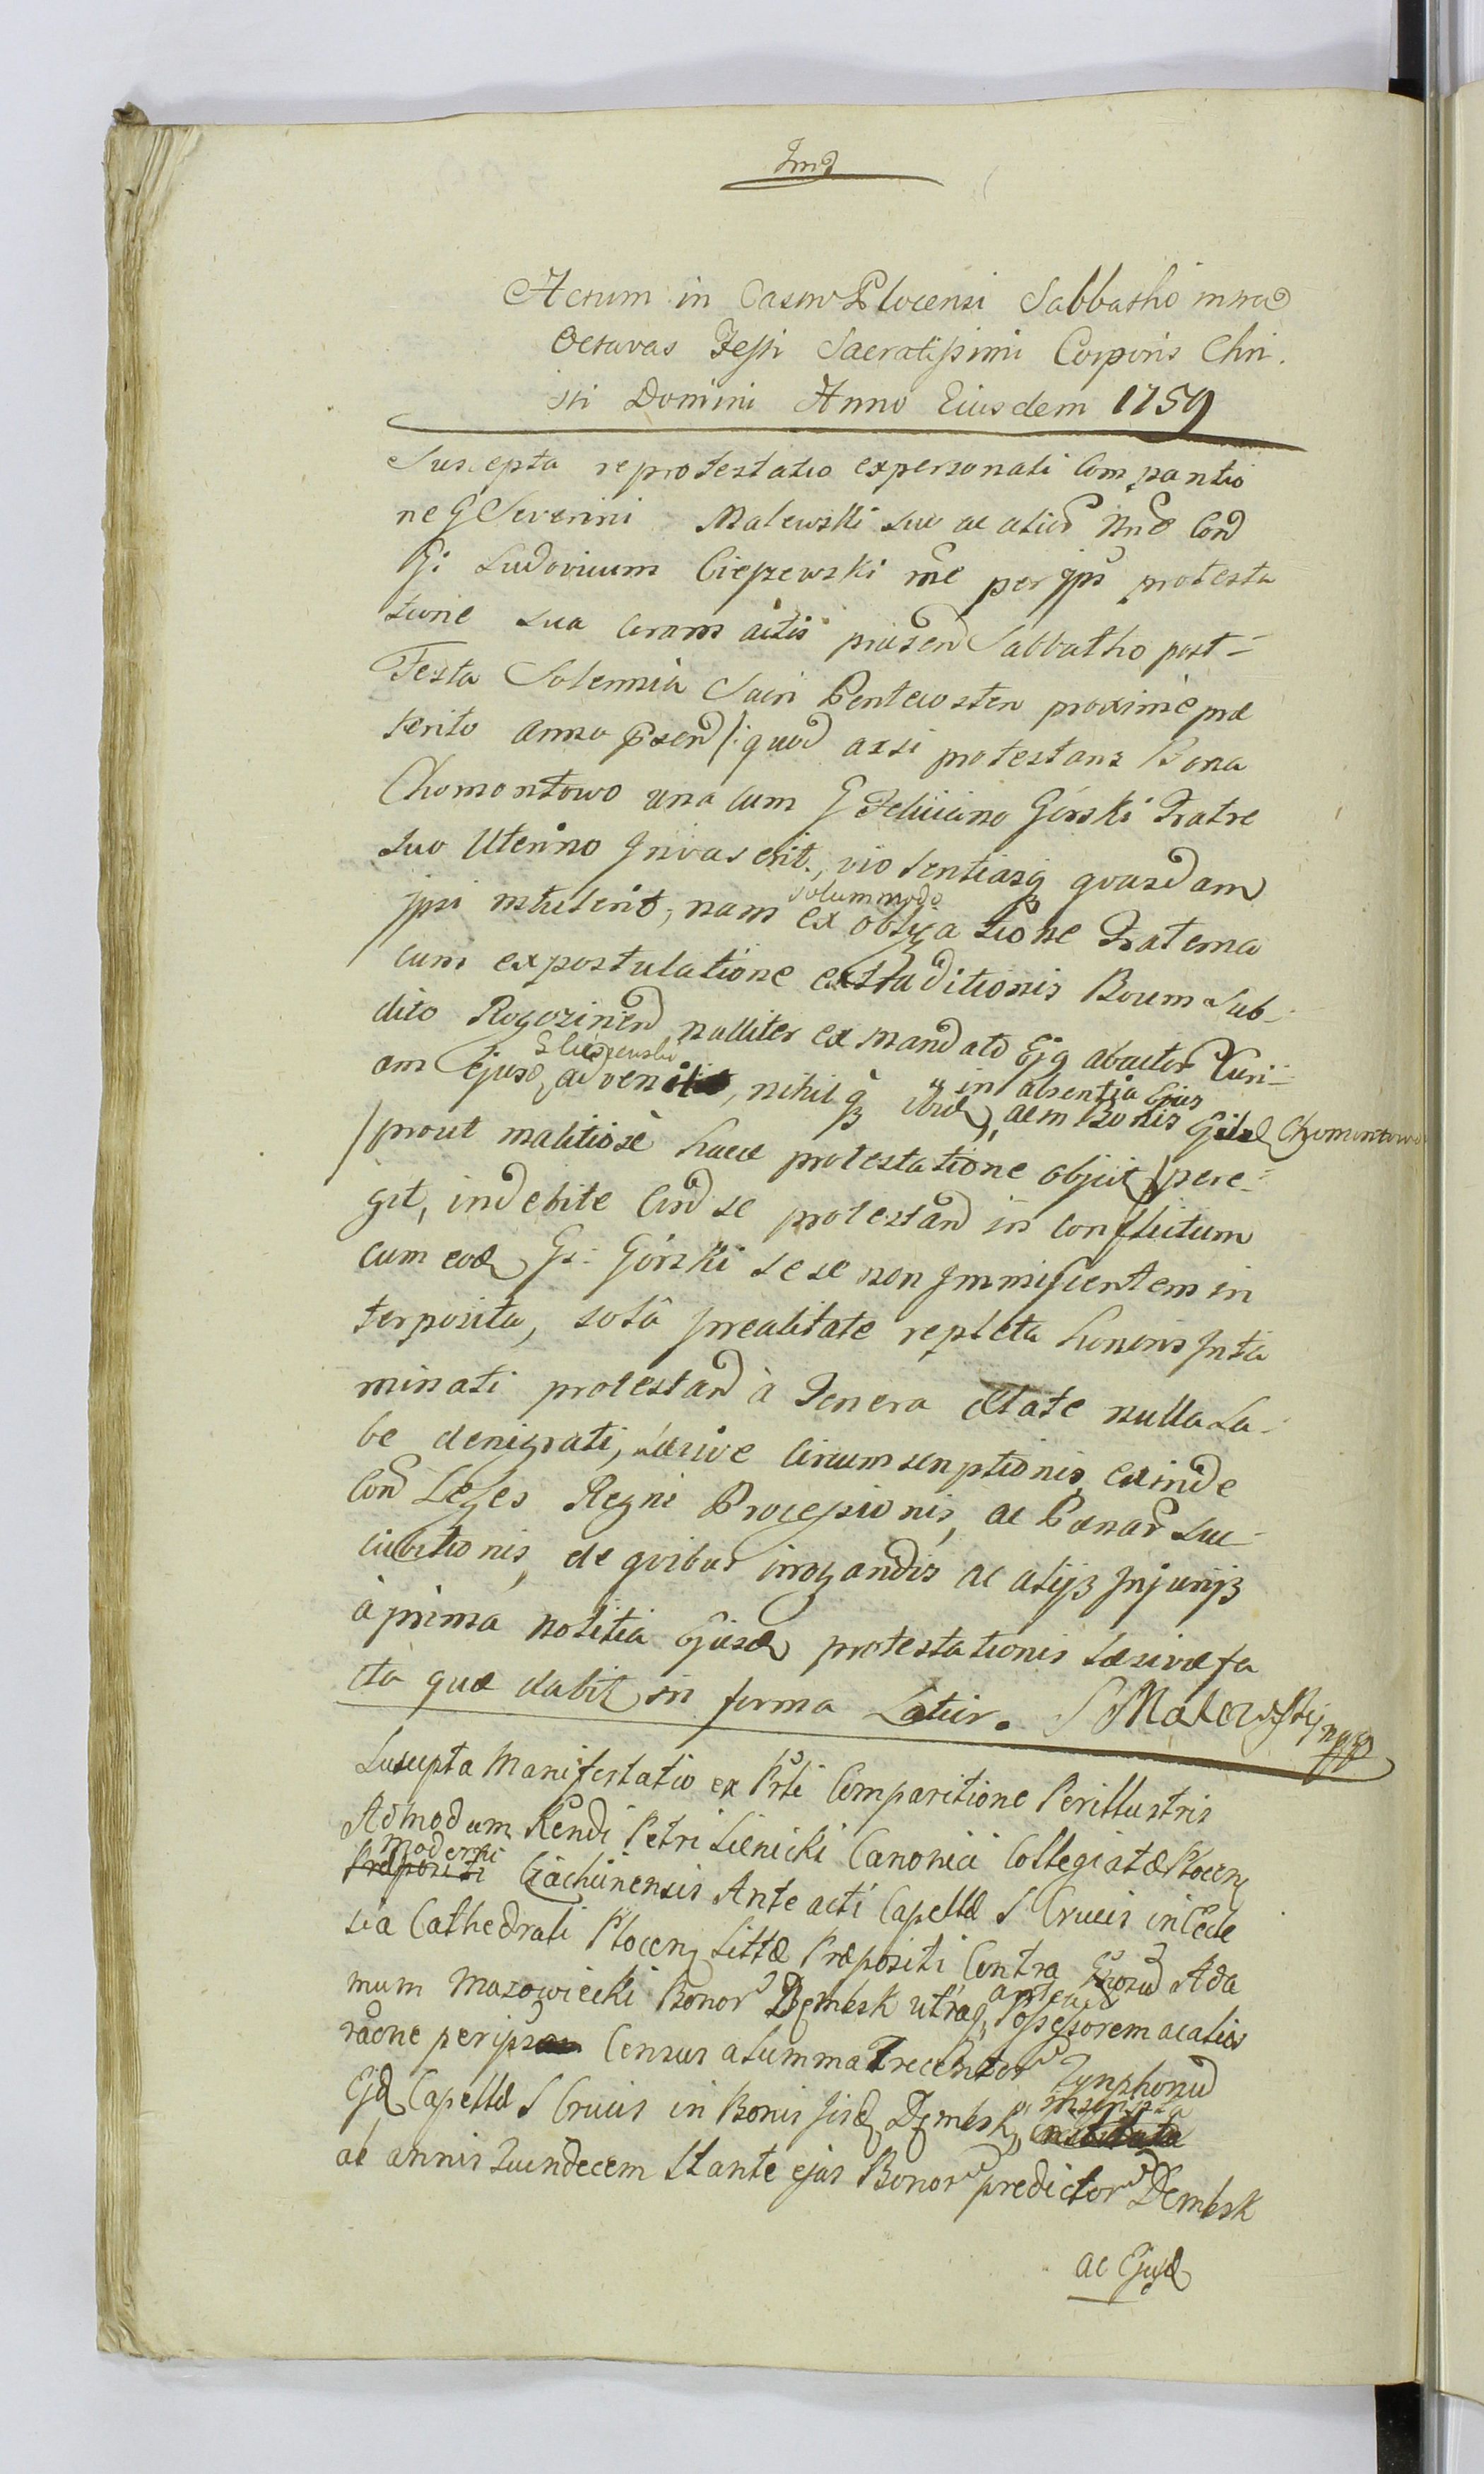 Ind
Actum in Castro Plocensi Sabbatho intra
Octavas Festi Sacratissimi Corporis Chri.
sti Domini Anno Eiusdem 1759
Suscepta reprotestatio expersonali Comparitio
ne G Severini Malewski suo ac alior Nne Con
G: Ludovicum Cieszewski rne per ips protesta
tione sua coram actis praesen Sabbatho post=
Festa Solennia Sacri Pentecosten proxime prae
terito anno praesen /: quod acsi protestans Bona
Chomontowo una cum G Feliciano Górski Fratre
suo Uterino Invaserit, violentiasq quasdam
jpsi intulerit, nam solummodo ex obligatione Fraterna
cum expostulatione extraditionis Boum Sub=
dito Rogozinen nulliter ex mandato Ejq abactor Curi=
am Ejusd Cieszewski advenit, nihilq ibid in absentia Ejus ac in Bonis Chomontowo
/prout malitiosè hacce protestatione objicit/ pere=
git, indebite Con se protestan in conflictum
cum eod G: Górski sese non Immiscentem in
terposita, solâ irrealitate repleta honoris Inta
minati protestan à Tenera aetate nulla La=
be denigrati, laesivae Circumscriptionis, exinde
Con Leges Regni Processionis, ac Paenar suc=
cubitionis, de quibus irrogandis ac alijs Injurijs
à prima notitia Ejusd protestationis laesivae fa
cta quae dabit in forma Latior. S Malewski mpp
Suscepta Manifestatio ex Prli Comparitione Perillustris
Admodum Rendi Petri Lienicki Canonici Collegiatae Plocen
Praepositi moderni Ciachcinensis Ante acti Capellae S Crucis in Eccle
sia Cathedrali Plocen Sittae Praepositi Contra Gnosu Ada
mum Mazowiecki Bonor Dembsk utraq antea Possessorem ac alios
raône per ipsum Census a summa Trecentor Tynphonu
Ejd Capellae S Crucis in Bonis jisd Dembsk inscripta
ab annis Quindecem Stante ejus Bonor predictor Dembsk
ac Ejusd